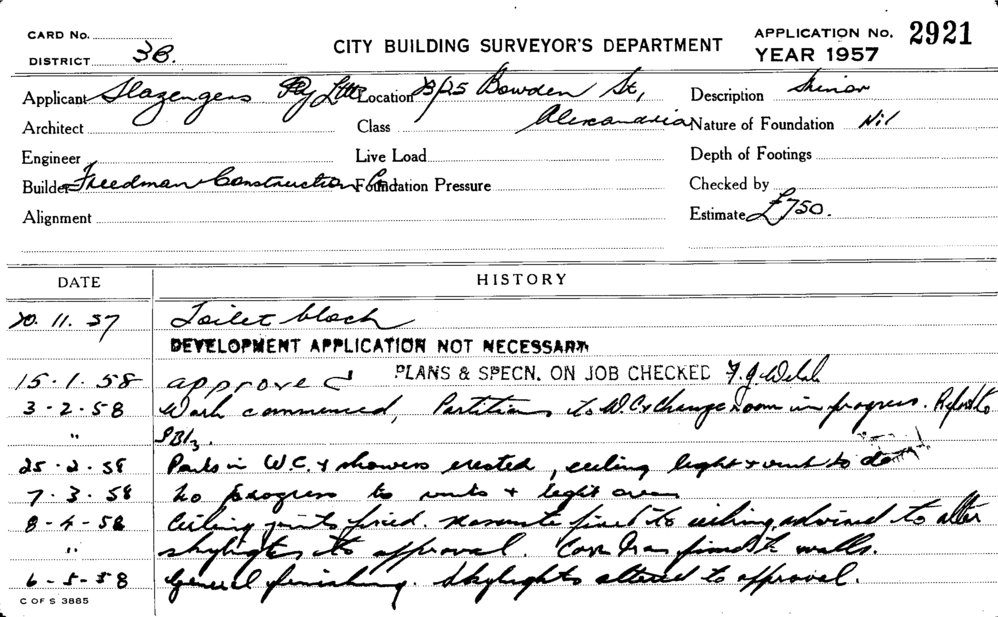 CARD No.
DISTRICT 3B.
CITY BUILDING SURVEYOR'S DEPARTMENT
APPLICATION No. 2921
YEAR 1957
Applicant Slazengers Pty Ltd Location 23/25 Bowden St, Description Minor
Architect Class Alexandria Nature of Foundation Nil
Engineer Live Load Depth of Footings
Builder Freedman Construction Co. Foundation Pressure Checked by
Alignment Estimate £750.
DATE HISTORY
20. 11. 57 Toilet block
DEVELOPMENT APPLICATION NOT NECESSARY
15-1.58 approved PLANS & SPECN. ON JOB CHECKED F.J. Welch
3-2.58 Work commenced, Partitions to W.C. & Change room in progress.
"
25.2.58 in W.C. & showers erected, ceiling light & vent to
7.3.58 No progress to vents & light over
8-4-58 Ceiling joists fixed. fixed to ceiling, advised to alter
" skylights to approval. fixed to walls.
6-5-58 General finishing. Skylights altered to approval.
C OF S 3885